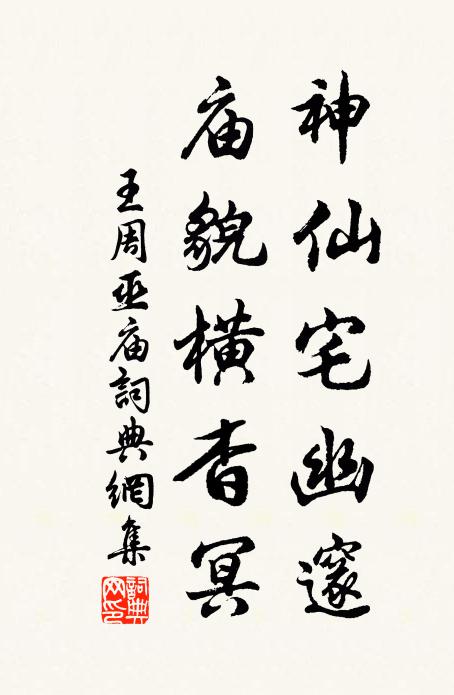 神仙宅幽邃
庙貌横杳冥
王周巫庙詞典網集
詞典
网印